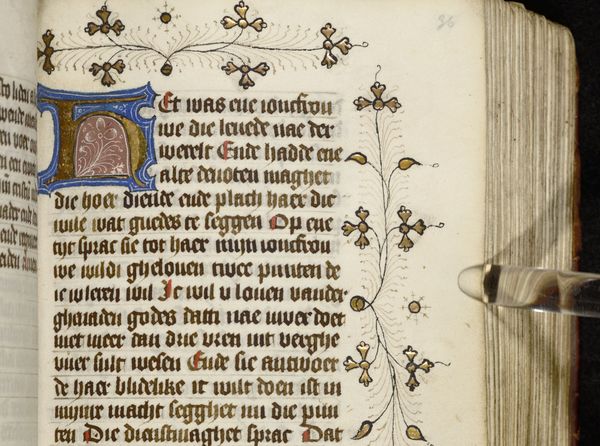 HEt was ene ioncfrou
we die leuede nae der
werelt Ende hadde ene
alte deuoten maghet
die hoer diende ende plach haer die
wile wat guedes te seggen Op ene
tijt sprac sie tot haer mijn ioncfrou
we wildi ghelouen twee punten de
ic v leren wil Ic wil v louen vander
ghenaden godes datti nae uwer doet
niet meer dan drie vren int veghe
vuer sult wesen Ende sie antwoer
de haer blidelike it wilt doen ist in
mijnre macht segghet mi die pun
ten Die dienstmaghet sprac Dat